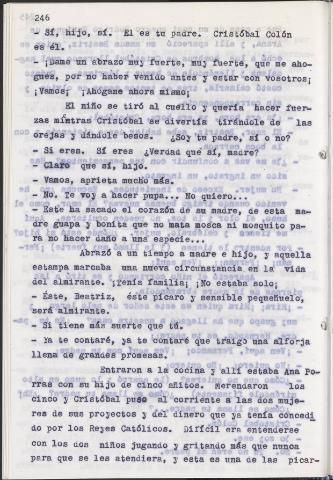 246
- Sí, hijo, sí. El es tu padre. Cristóbal Colón
es él.
- ¡Dame un abrazo muy fuerte, muy fuerte, que me aho-
gues, por no haber venido antes y estar con vosotros;
¡Vamos; ¡Ahógame ahora mismo;
El niño se tiró al cuello y quería hacer fuer-
zas mientras Cristóbal se divertía tirándole de las
orejas y dándole besos. ¿Soy tu padre, sí o no?
- Sí eres. Sí eres ¿Verdad que sí, madre?
- Claro que sí, hijo.
- Vamos, aprieta mucho más.
- No. Te voy a hacer pupa... No quiero...
- Este ha sacado el corazón de su madre, de esta ma-
dre guapa y bonita que no mata mosca ni mosquito pa-
ra no hacer daño a una especie...
Abrazó a un tiempo a madre e hijo, y aquella
estampa marcaba una nueva circunstancia en la vida
del almirante. ¡Tenía familia; ¡No estaba solo;
- Éste, Beatriz, éste pícaro y sensible pequeñuelo,
será almirante.
- Si tiene más suerte que tú.
- Ya te contaré, ya te contaré que traigo una alforja
llena de grandes promesas.
Entraron a la cocina y allí estaba Ana Po-
rras con su hijo de cinco añitos. Merendaron los
cinco y Cristóbal puso al corriente a las dos muje-
res de sus proyectos y del dinero que ya tenía concedi
do por los Reyes Católicos. Difícil era entenderse
con los dos niños jugando y gritando más que nunca
para que se les atendiera, y esta es una de las picar-